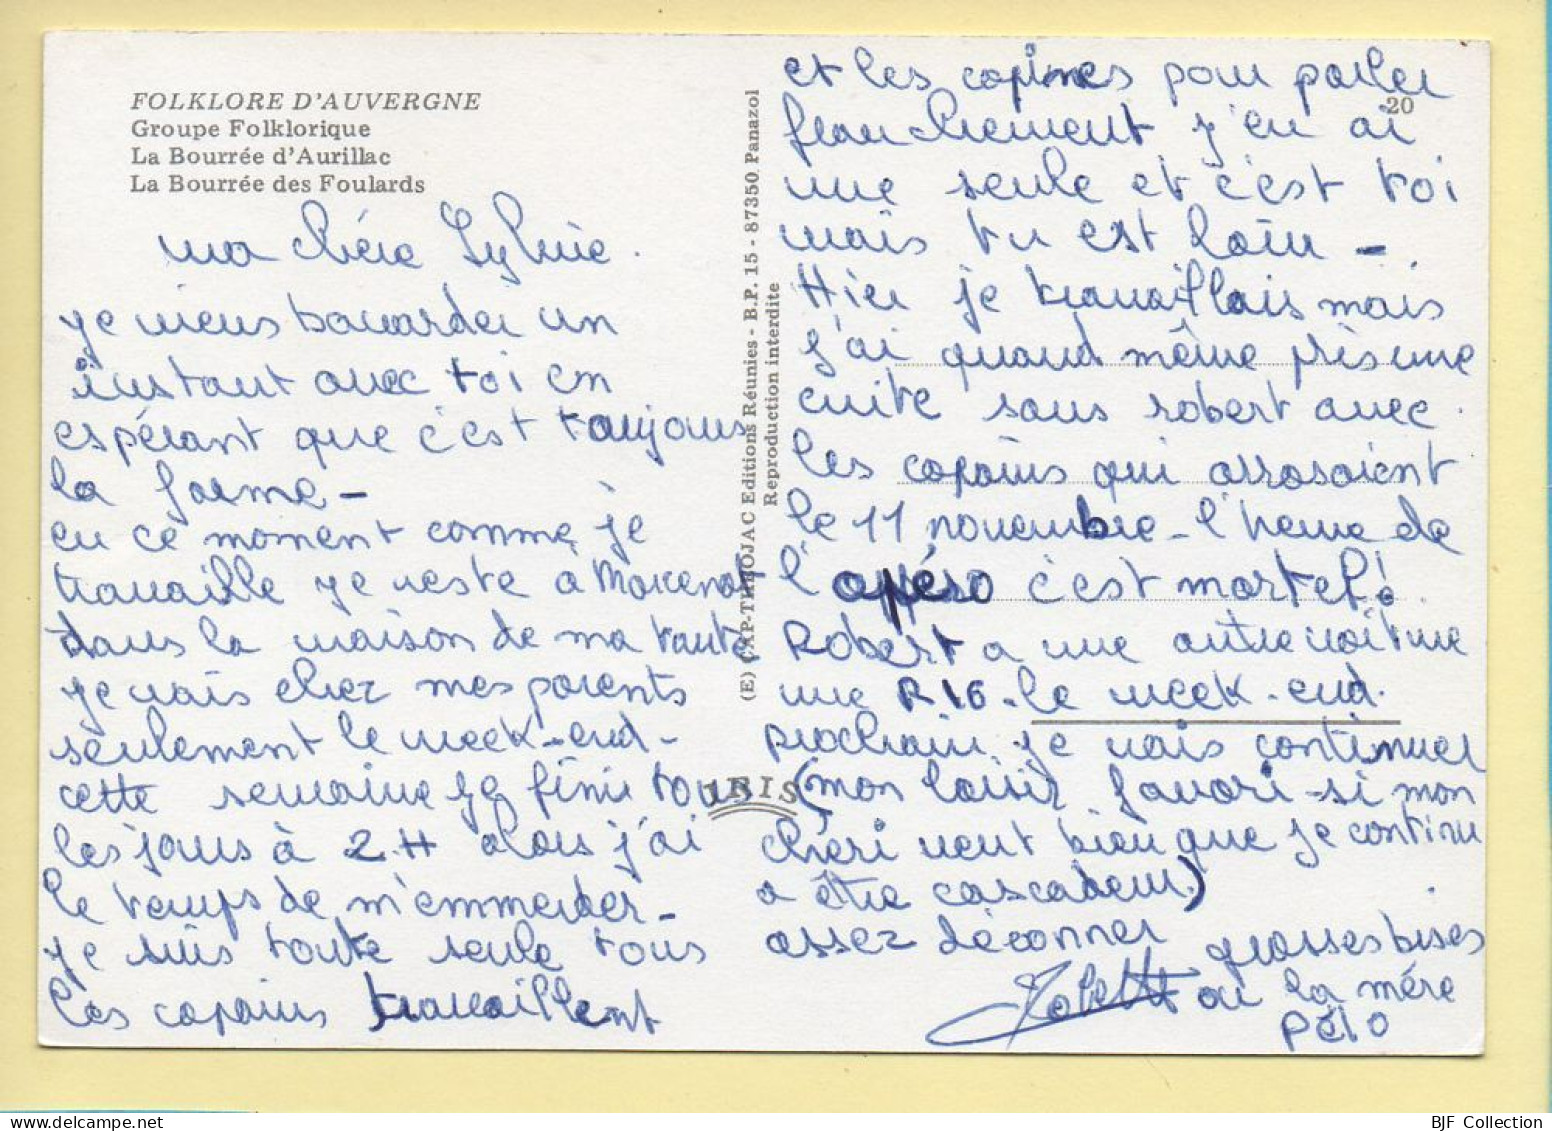 FOLKLORE D'AUVERGNE
Groupe Folklorique
La Bourrée d'Aurillac
La Bourrée des Foulards
ma chére Sylvie.
je viens bavarder un
instant avec toi en
espérant que c'est toujours
la forme -
en ce moment comme je
travaille je reste à Marcenat
dans la maison de ma tante
je vais chez mes parents
seulement le week-end -
cette semaine je finis tous
les jours à 2H alors j'ai
le temps de m'emmerder -
je suis toute seule tous
les copains travaillent
(E) CAP-THEOJAC Editions Réunies - B.P. 15 - 87350 Panazol
Reproduction interdite
IRIS
20
et les copines pour parler
franchement j'en ai
une seule et c'est toi
mais tu est loin -
Hier je travaillais mais
j'ai quand même pris une
cuite sans robert avec
les copains qui arrosaient
le 11 novembre - l'heure de
l'apéro c'est mortel!
Robert a une autre voiture
une R16 - le week-end
prochain je vais continuer
(mon loisir favori - si mon
chéri veut bien que je continu
a être cascadeur)
assez déconner grosses bises
ou la mére
Pélo
BJF Collection